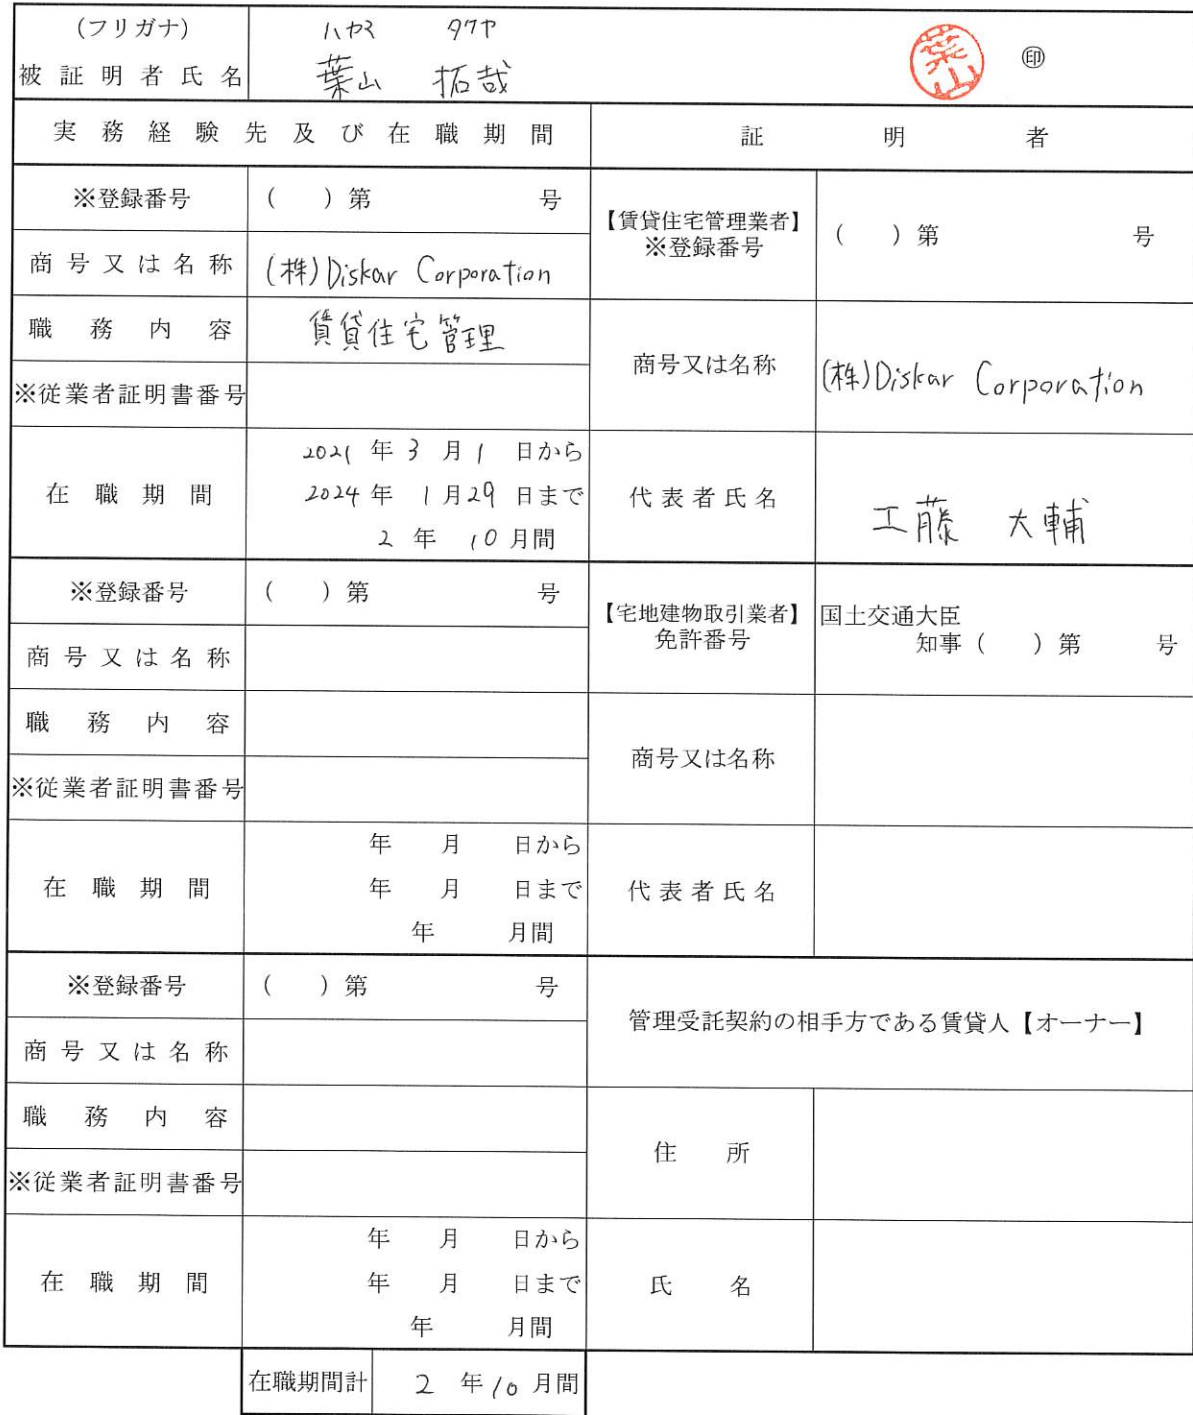 (フリガナ) ハヤマ タクヤ
被証明者氏名 葉山 拓哉 葉山 ㊞
実務経験先及び在職期間 証明者
※登録番号 ( )第 号
【賃貸住宅管理業者】
※登録番号 ( )第 号
商号又は名称 (株)Diskar Corporation
職務内容 賃貸住宅管理
商号又は名称 (株)Diskar Corporation
※従業者証明書番号
在職期間
2021 年 3 月 1 日から
2024 年 1 月 29 日まで
2 年 10 月間
代表者氏名 工藤 大輔
※登録番号 ( )第 号
【宅地建物取引業者】
免許番号
国土交通大臣
知事( )第 号
商号又は名称
職務内容
商号又は名称
※従業者証明書番号
在職期間
年 月 日から
年 月 日まで
年 月間
代表者氏名
※登録番号 ( )第 号
管理受託契約の相手方である賃貸人【オーナー】
商号又は名称
職務内容
住所
※従業者証明書番号
在職期間
年 月 日から
年 月 日まで
年 月間
氏名
在職期間計 2 年 10 月間